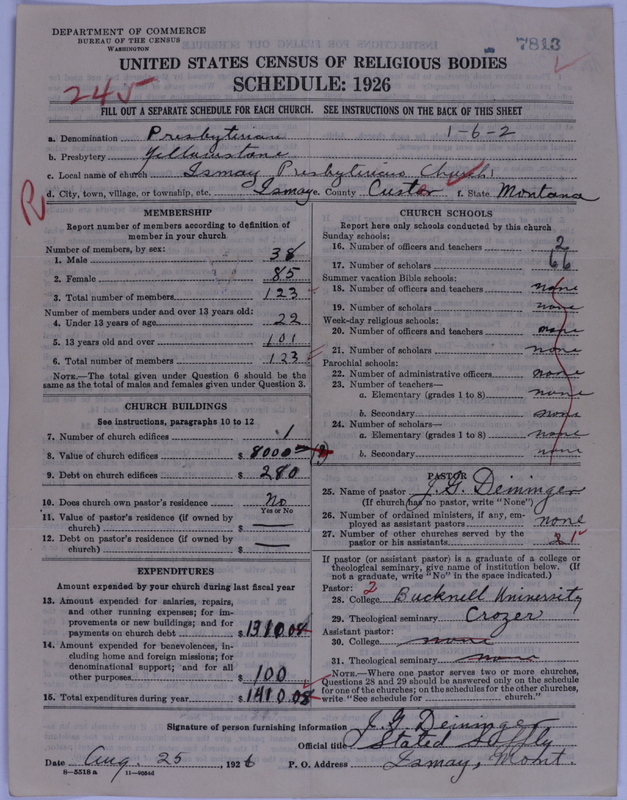 DEPARTMENT OF COMMERCE
BUREAU OF THE CENSUS
WASHINGTON
7813
UNITED STATES CENSUS OF RELIGIOUS BODIES
SCHEDULE: 1926
245
FILL OUT A SEPARATE SCHEDULE FOR EACH CHURCH. SEE INSTRUCTIONS ON THE BACK OF THIS SHEET
a. Denomination Presbyterian 1-6-2
b. Presbytery Yellowstone
c. Local name of church Ismay Presbyterian Church
d. City, town, village, or township, etc. Ismay e. County Custer f. State Montana
R
MEMBERSHIP
Report number of members according to definition of
member in your church
Number of members, by sex:
1. Male 38
2. Female 85
3. Total number of members 123
Number of members under and over 13 years old:
4. Under 13 years of age 22
5. 13 years old and over 101
6. Total number of members 123
NOTE.—The total given under Question 6 should be
the same as the total of males and females given under Question 3.
CHURCH BUILDINGS
See instructions, paragraphs 10 to 12
7. Number of church edifices 1
8. Value of church edifices $ 8000
9. Debt on church edifices $ 280
10. Does church own pastor's residence No
Yes or No
11. Value of pastor's residence (if owned by
church) $ —
12. Debt on pastor's residence (if owned by
church) $ —
EXPENDITURES
Amount expended by your church during last fiscal year
13. Amount expended for salaries, repairs,
and other running expenses; for im-
provements or new buildings; and for
payments on church debt $ 1310.08
14. Amount expended for benevolences, in-
cluding home and foreign missions; for
denominational support; and for all
other purposes $ 100
15. Total expenditures during year $ 1410.08
CHURCH SCHOOLS
Report here only schools conducted by this church
Sunday schools:
16. Number of officers and teachers 2
17. Number of scholars 66
Summer vacation Bible schools:
18. Number of officers and teachers none
19. Number of scholars none
Week-day religious schools:
20. Number of officers and teachers none
21. Number of scholars none
Parochial schools:
22. Number of administrative officers none
23. Number of teachers—
a. Elementary (grades 1 to 8) none
b. Secondary none
24. Number of scholars—
a. Elementary (grades 1 to 8) none
b. Secondary none
PASTOR
25. Name of pastor J. G. Deininger
(If church has no pastor, write "None")
26. Number of ordained ministers, if any, em-
ployed as assistant pastors none
27. Number of other churches served by the
pastor or his assistants
If pastor (or assistant pastor) is a graduate of a college or
theological seminary, give name of institution below. (If
not a graduate, write "No" in the space indicated.)
Pastor: 2
28. College Bucknell University
29. Theological seminary Crozer
Assistant pastor:
30. College none
31. Theological seminary none
NOTE.—Where one pastor serves two or more churches,
Questions 28 and 29 should be answered only on the schedule
for one of the churches; on the schedules for the other churches,
write "See schedule for church."
Signature of person furnishing information J. G. Deininger
Official title Stated Supply
Date Aug. 25, 1926 P. O. Address Ismay, Mont.
8—5518 a